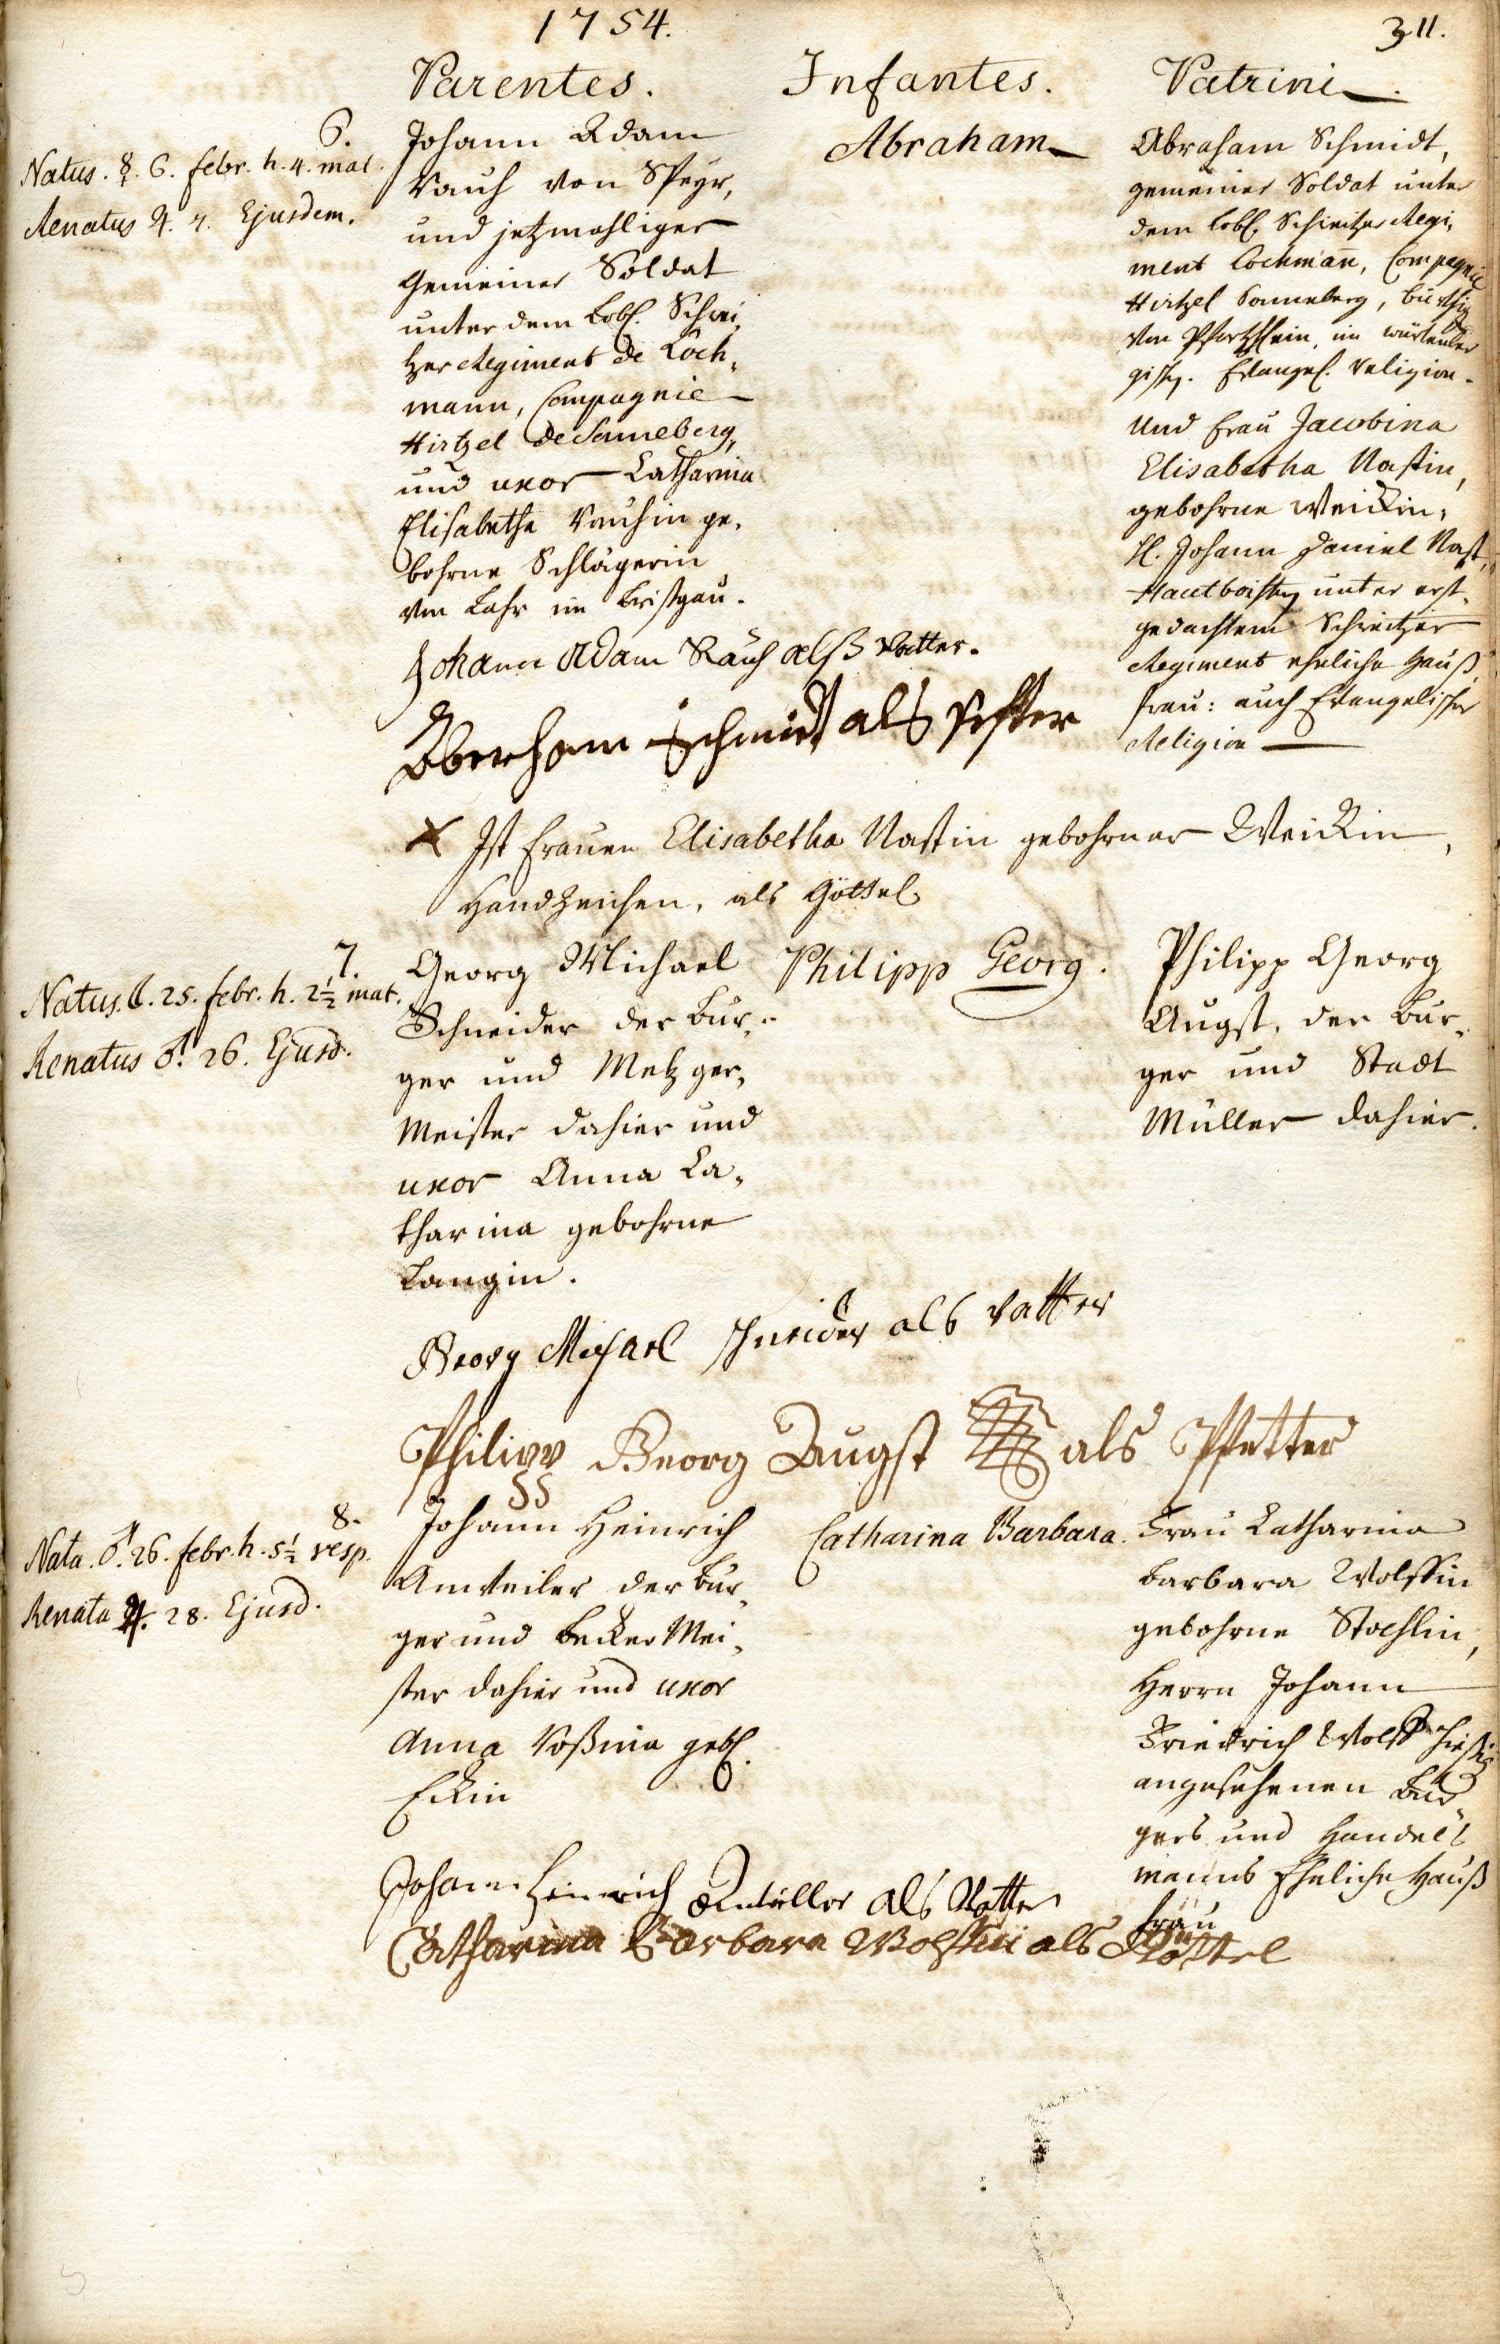 1754.
311.
Parentes.
Infantes.
Patrini.
6.
Natus. ☿. 6. febr. h. 4. mat.
Renatus ♃. 7. Ejusdem.
Johann Adam
Rauch von Speyr,
und jetzmahliger
Gemeiner Soldat
unter dem Lobl. Schwei,
tzer Regiment de Loch,
mann, Compagnie
Hirtzel de Sonneberg,
und uxor Catharina
Elisabetha Rauchin ge,
bohrne Schlägerin
von Lahr im Brißgau.
Abraham
Abraham Schmidt,
gemeiner Soldat unter
dem Lobl. Schweitzer Regi,
ment Lochman̄, Compagnie
Hirtzel Sonneberg, bürthig
von im würtenber
gisch. Evangel. Religion.
Und Frau Jacobina
Elisabetha Nastin,
gebohrne Weickin,
H. Johann Daniel Nast,
Hautboisten unter erst,
gedachtem Schweitzer
Regiment eheliche Hauß,
frau: auch Evangelischer
Religion
Johann Adam Rauch alß Vatter.
Aberham Schmidt als Petter
X Ist Frauen Elisabetha Nastin gebohrner Weickin,
Handzeichen, als Göttel
7.
Natus. ♄. 25. febr. h. 2½ mat.
Renatus ♂. 26. Ejusd.
Georg Michael
Schneider der Bur,
ger und Metzger,
Meister dahier und
uxor Anna Ca,
tharina gebohrne
Langin.
Philipp Georg.
Philipp Georg
Augst, der Bur,
ger und Stadt
Müller dahier.
Georg Michael schneider als vatter
Philipp Georg Augst als Pfetter
8.
Nata. ♂. 26. febr. h. 5½ vesp.
Renata ♃. 28. Ejusd.
Johann Heinrich
Anweiler der Bur,
ger und Becker Mei,
ster dahier und uxor
Anna Roßina gebl.
Eckin
Catharina Barbara.
Frau Catharina
Barbara Wolffin
gebohrne Stoehlin,
Herrn Johann
Friedrich Wolff hiesig
angesehenen Bur
gers und Handels
manns Eheliche Hauß
frau
Johann Heinrich als Vatter
Catharina Barbara Wolffin als Göttel